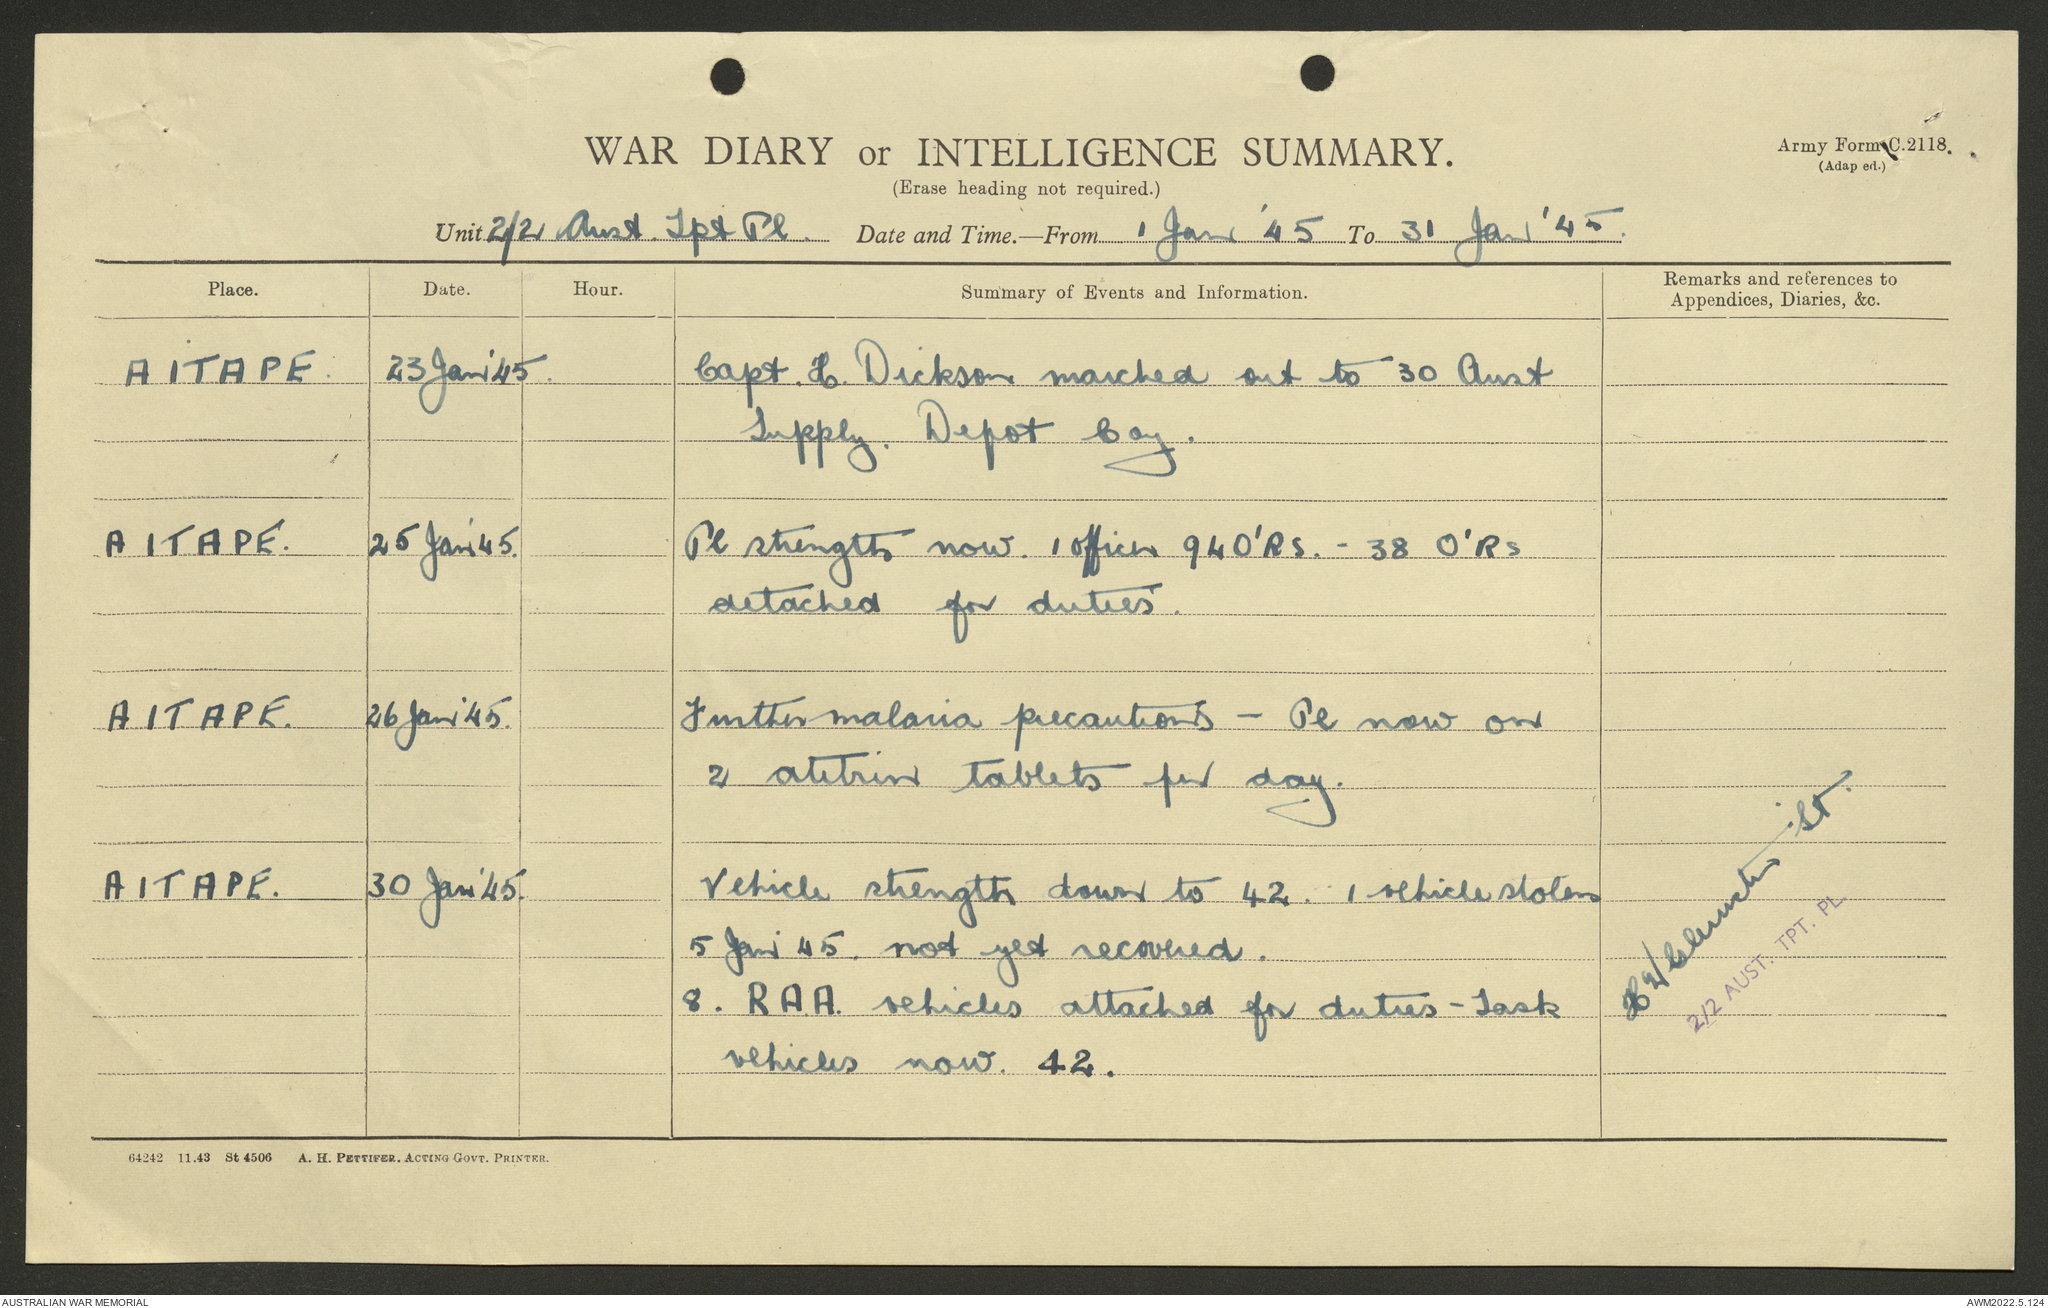 WAR DIARY or INTELLIGENCE SUMMARY.
Army Form C.2118.
(Adap ed.)
(Erase heading not required.)
Unit 2/2 Aust. Tpt Pl. Date and Time.—From 1 Jan '45 To 31 Jan '45.
Place. Date. Hour. Summary of Events and Information. Remarks and references to
Appendices, Diaries, &c.
AITAPE. 23 Jan '45. Capt. H. Dickson marched out to 30 Aust
Supply. Depot Coy.
AITAPE. 25 Jan '45. Pl strength now. 1 officer 94 O'Rs. - 38 O'Rs
detached for duties.
AITAPE. 26 Jan '45. Further malaria precautions - Pl now on
2 atebrin tablets per day.
AITAPE. 30 Jan '45. Vehicle strength down to 42. 1 vehicle stolen
5 Jan 45. not yet recovered.
8. RAA. vehicles attached for duties - Task
vehicles now. 42.
Lt.
2/2 AUST. TPT. PL.
64242 11.43 St 4506 A. H. PETTIFER, ACTING GOVT. PRINTER.
AUSTRALIAN WAR MEMORIAL
AWM2022.5.124